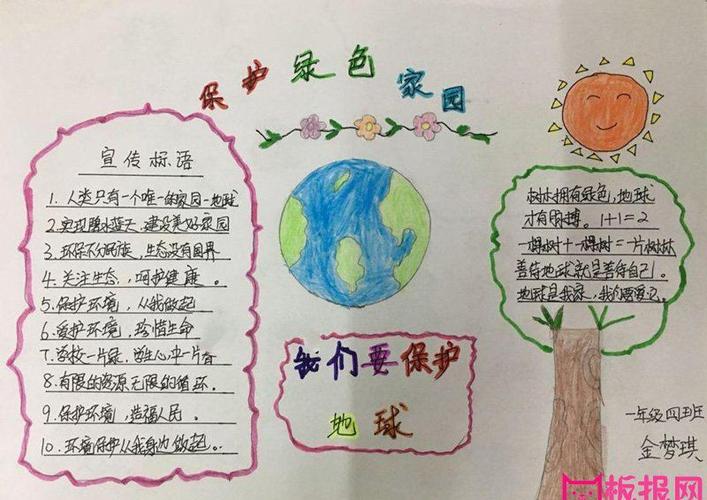 保护绿色家园
宣传标语
1. 人类只有一个唯一的家园-地球
2. 实现碧水蓝天,建设美好家园
3. 环保不分民族,生态没有国界
4. 关注生态,呵护健康。
5. 保护环境,从我做起
6. 爱护环境,珍惜生命
7. 学校一片绿,学生心中一片春
8. 有限的资源无限的循环.
9. 保护环境,造福人民。
10. 环境保护从我身边做起。
我们要保护
地球
树林拥有绿色,地球
才有脉搏。1+1=2
一棵树+一棵树=一片树林
善待地球就是善待自己。
地球是我家,我们要爱它。
一年级四班
金梦琪
板报网